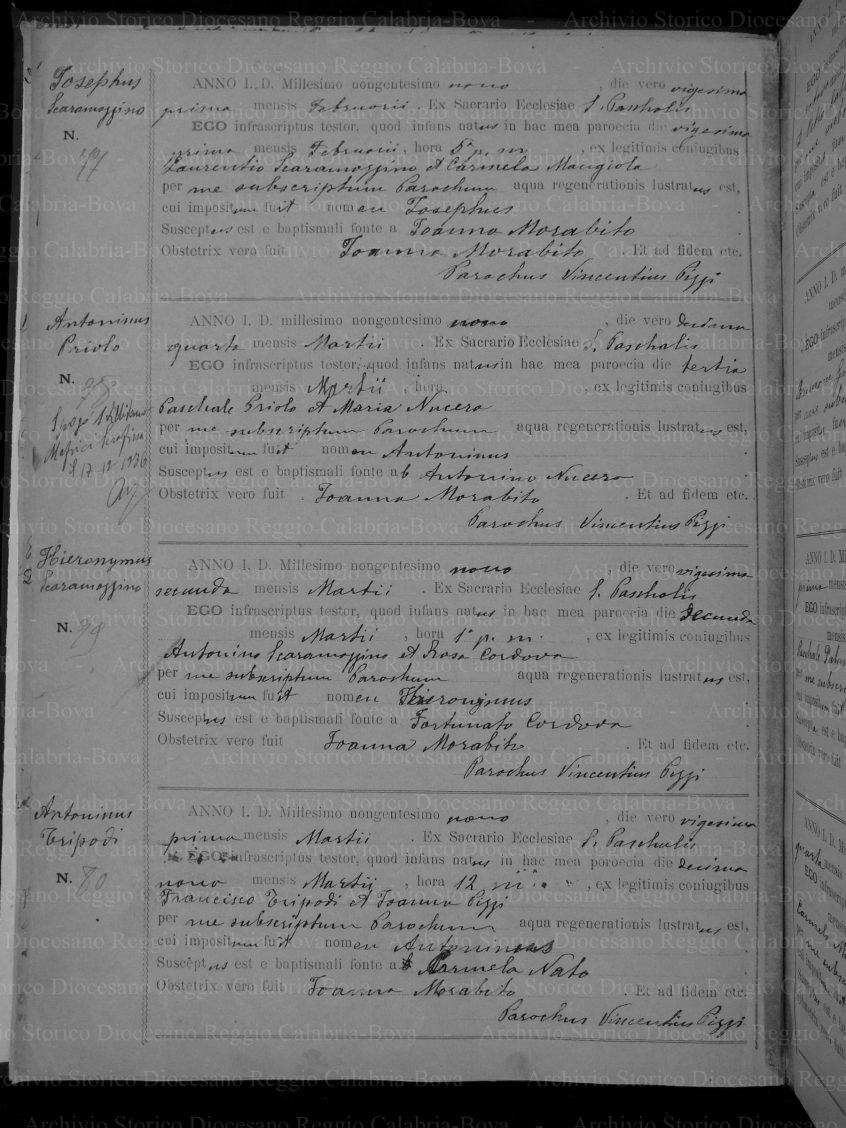 Josephus
Scaramozzino
N.
77
ANNO I. D. Millesimo nongentesimo nono, die vero vigesima
prima mensis Februarii. Ex Sacrario Ecclesiae S. Paschalis
EGO infrascriptus testor, quod infans natus in hac mea paroecia die vigesima
prima mensis Februarii, hora 5ª p. m., ex legitimis coniugibus
Laurentio Scaramozzino et Carmela Mangiola
per me subscriptum Parochum aqua regenerationis lustratus est,
cui impositum fuit nomen Josephus
Susceptus est e baptismali fonte a Joanna Morabito
Obstetrix vero fuit Joanna Morabito. Et ad fidem etc.
Parochus Vincentius Pizzi
Antoninus
Priolo
N.
78
17-12-1936
ANNO I. D. millesimo nongentesimo nono, die vero decima
quarta mensis Martii. Ex Sacrario Ecclesiae S. Paschalis
EGO infrascriptus testor, quod infans natus in hac mea paroecia die tertia
mensis Martii, hora, ex legitimis coniugibus
Paschale Priolo et Maria Nucera
per me subscriptum Parochum aqua regenerationis lustratus est,
cui impositum fuit nomen Antoninus
Susceptus est e baptismali fonte ab Antonino Nucera
Obstetrix vero fuit Joanna Morabito. Et ad fidem etc.
Parochus Vincentius Pizzi
Hieronymus
Scaramozzino
N.
79
ANNO I. D. Millesimo nongentesimo nono, die vero vigesima
secunda mensis Martii. Ex Sacrario Ecclesiae S. Paschalis
EGO infrascriptus testor, quod infans natus in hac mea paroecia die secunda
mensis Martii, hora 1ª p. m., ex legitimis coniugibus
Antonino Scaramozzino et Rosa Cordova
per me subscriptum Parochum aqua regenerationis lustratus est,
cui impositum fuit nomen Hieronymus
Susceptus est e baptismali fonte a Fortunato Cordova
Obstetrix vero fuit Joanna Morabito. Et ad fidem etc.
Parochus Vincentius Pizzi
Antoninus
Tripodi
N.
80
ANNO I. D. Millesimo nongentesimo nono, die vero vigesima
prima mensis Martii. Ex Sacrario Ecclesiae S. Paschalis
EGO infrascriptus testor, quod infans natus in hac mea paroecia die decima
nono mensis Martii, hora 12 m., ex legitimis coniugibus
Francisco Tripodi et Joanna Pizzi
per me subscriptum Parochum aqua regenerationis lustratus est,
cui impositum fuit nomen Antoninus
Susceptus est e baptismali fonte a Carmela Nato
Obstetrix vero fuit Joanna Morabito. Et ad fidem etc.
Parochus Vincentius Pizzi